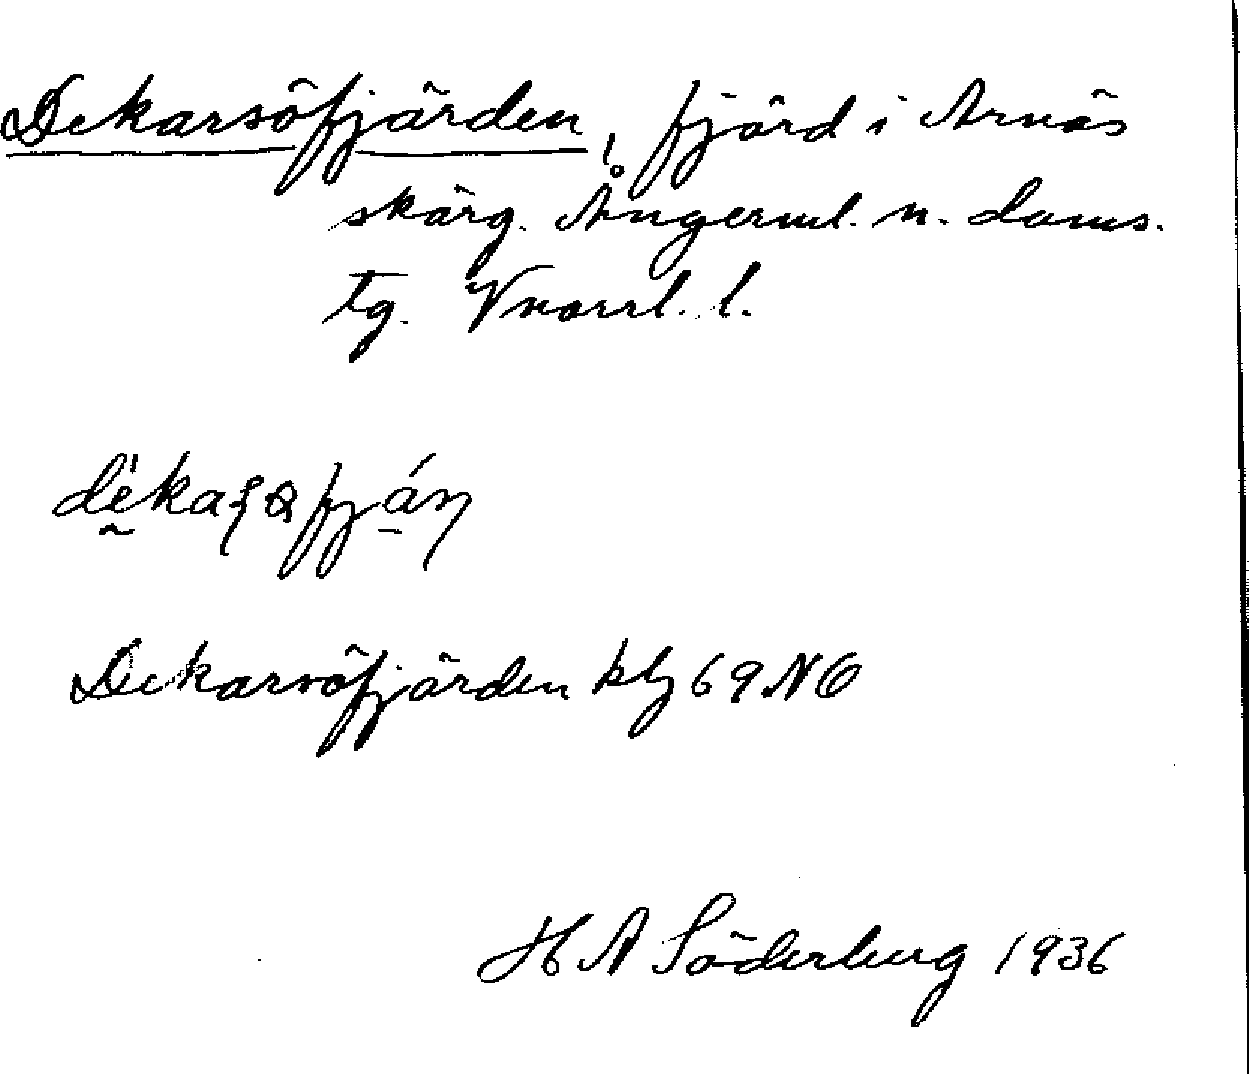 Dekarsöfjärden, fjärd i Arnäs
skärg. Ångerml. n. doms.
tg. Vnorrl. l.
Dekarsöfjärden kbl 69 NO
H A Söderberg 1936